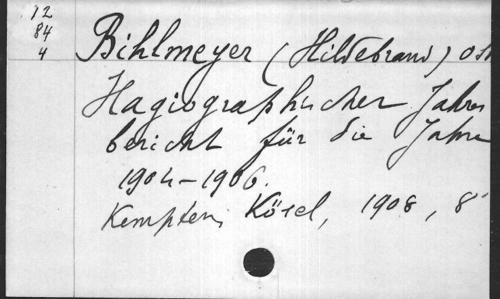 12
84
4
Bihlmeyer (Hildebrand) OSB
Hagiographischer Jahres
bericht für die Jahre
1904-1906.
Kempten, Kösel, 1908, 8°